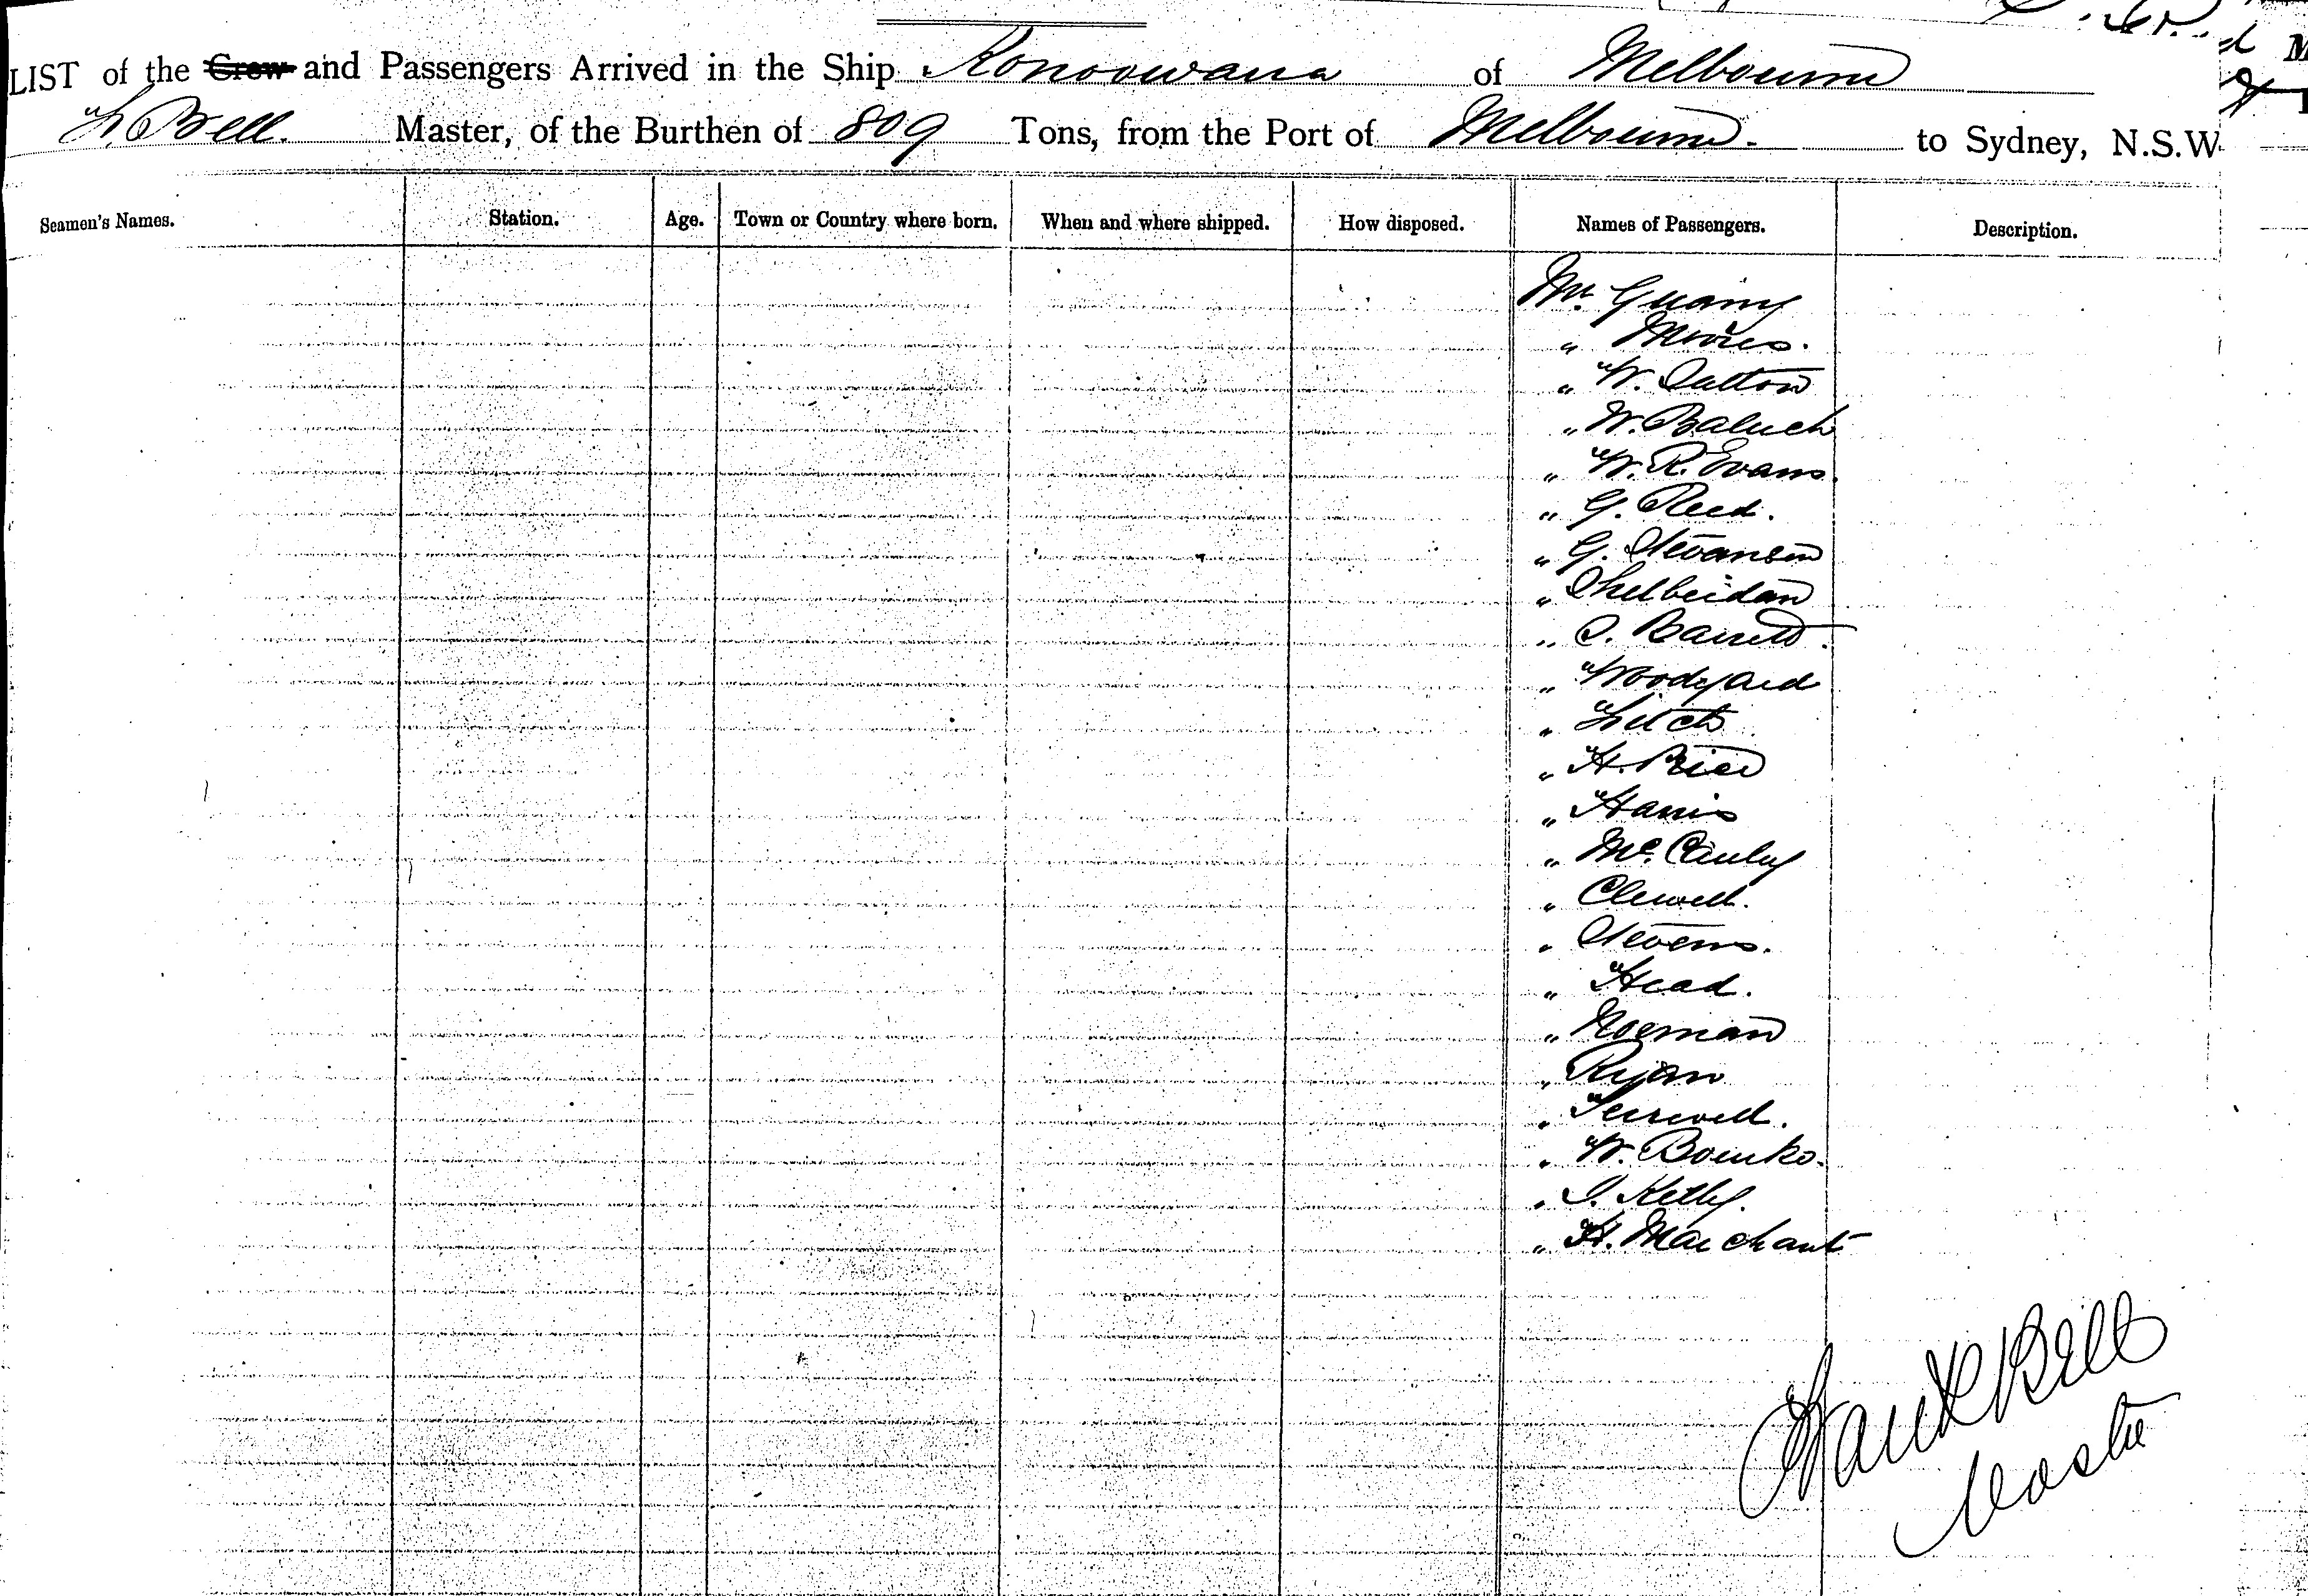 LIST of the Crew and Passengers Arrived in the Ship Konoowana of Melbourne
F. Bell. Master, of the Burthen of 809 Tons, from the Port of Melbourne. to Sydney, N.S.W.
Seamen's Names. Station. Age. Town or Country where born. When and where shipped. How disposed. Names of Passengers. Description.
Mr.
" Moores.
" W. Dalton
" W. Baluch
" W. R. Evans.
" G. Reed.
" G. Stevanson
"
" S. Barrett.
" Woodyard
"
" H. Price
" Harris
" McCauly
" Clewell.
" Stevens.
" Head.
" Norman
" Ryan
"
" W.
" J. Kelly.
" H. Marchant
Frank Bell
Master